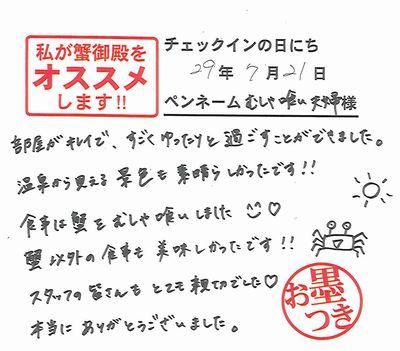 私が蟹御殿を
オススメ
します!!
チェックインの日にち
29年7月21日
ペンネーム むしゃ喰い夫婦様
部屋がキレイで、すごくゆったりと過ごすことができました。
温泉から見える景色も素晴らしかったです!!
食事は蟹をむしゃ喰いしました♡
蟹以外の食事も美味しかったです!!
スタッフの皆さんもとても親切でした♡
本当にありがとうございました。
お墨つき